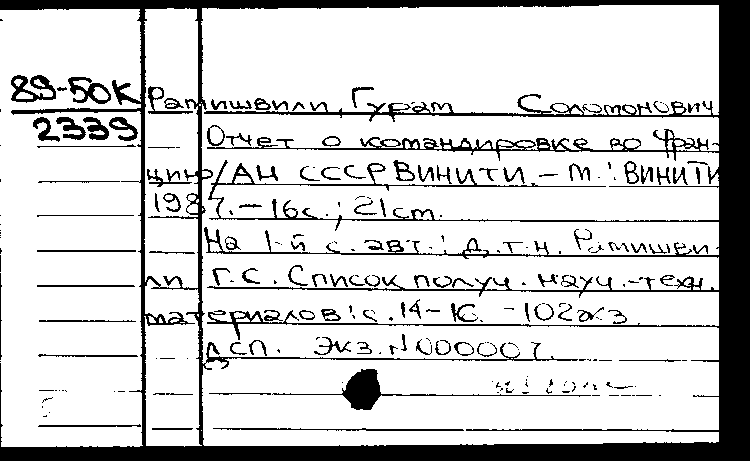 89-50К Рамишвили, Гурам Соломонович
2339 Отчет о командировке во Фран-
цию/АН СССР, ВИНИТИ. – М.: ВИНИТИ
1987. – 16с.; 21см.
На 1-й с. авт.: д.т.н. Рамишви-
ли Г.С. Список получ. науч.-техн.
материалов: с. 14-16. - 102экз.
дсп. Экз. N 000007.